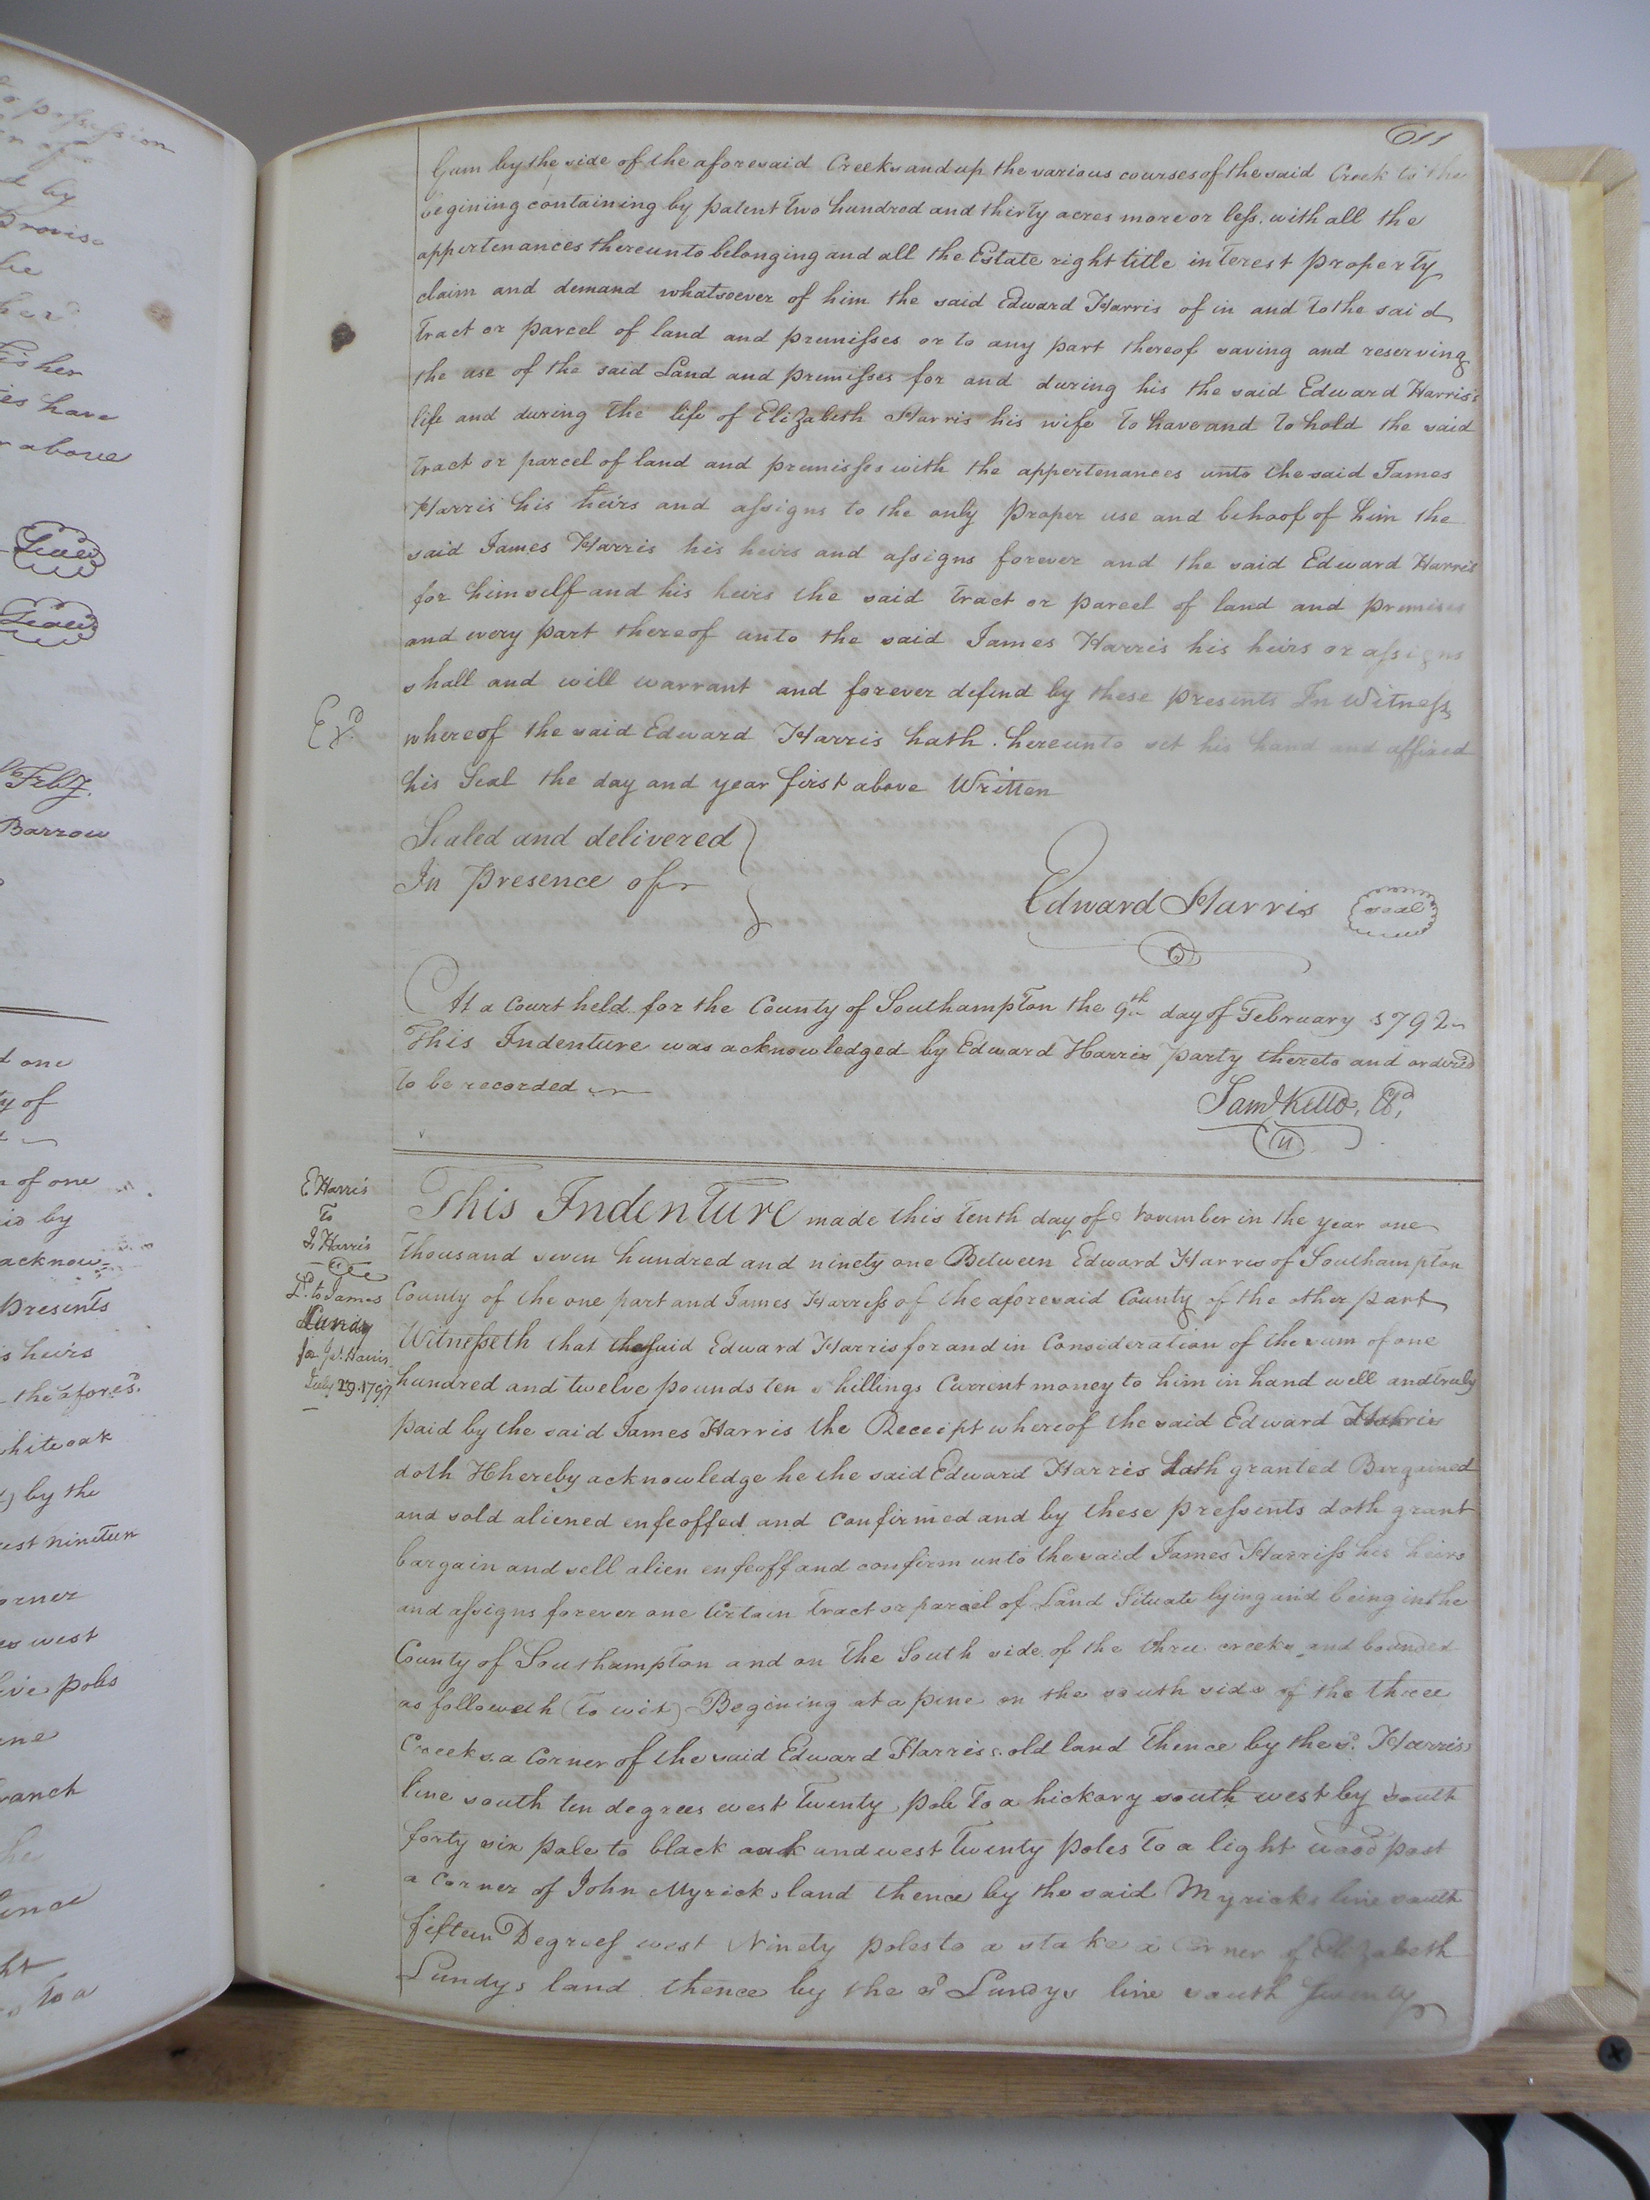 611
Gum by the side of the aforesaid Creek and up the various courses of the said Creek to the
begining containing by patent Two hundred and thirty acres more or less. with all the
appertenances thereunto belonging and all the Estate right title interest property
claim and demand whatsoever of him the said Edward Harris of in and to the said
Tract or parcel of land and premisses or to any part thereof saving and reserving
the use of the said Land and premisses for and during his the said Edward Harris's
life and during the life of Elizabeth Harris his wife To have and To hold the said
Tract or parcel of land and premisses with the appertenances unto the said James
Harris his heirs and assigns to the only proper use and behoof of him the
said James Harris his heirs and assigns forever and the said Edward Harris
for himself and his heirs the said Tract or parcel of land and premises
and every part thereof unto the said James Harris his heirs or assigns
shall and will warrant and forever defend by these presents In Witness
Ex.d
whereof the said Edward Harris hath hereunto set his hand and affixed
his Seal the day and year first above Written
Sealed and delivered
In presence of
Edward Harris seal
At a Court held for the County of Southampton the 9th day of February 1792
This Indenture was acknowledged by Edward Harris party thereto and ordered
to be recorded
Saml Kello, Cl.
E Harris
To
J. Harris
D.d to James
Lundy
for Js. Harris
July 29. 1797
This Indenture made this Tenth day of November in the year one
Thousand seven hundred and ninety one Between Edward Harris of Southampton
County of the one part and James Harress of the aforesaid County of the other part
Witnesseth that the said Edward Harris for and in Consideration of the sum of one
hundred and twelve pounds ten shillings Current money to him in hand well and truly
paid by the said James Harris the Receipt whereof the said Edward Harris
doth Hhereby acknowledge he the said Edward Harris hath granted Bargained
and sold aliened enfeoffed and Confirmed and by these pressents doth grant
bargain and sell alien enfeoff and confirm unto the said James Harriss his heirs
and assigns forever one Certain Tract or parcel of Land Situate lying and being in the
County of Southampton and on The South side of the three creeks and bounded
as followeth (To wit) Begining at a pine on the south side of the three
Creeks a Corner of the said Edward Harriss old land Thence by the sd. Harriss
line south ten degrees west Twenty pole To a hickory south west by south
forty six pole to black oak and west Twenty poles To a light wood post
a Corner of John Myricks land thence by the said Myricks line south
fifteen Degrees west Ninety poles to a stake a Corner of Elizabeth
Lundys land thence by the sd Lundys line south Twenty